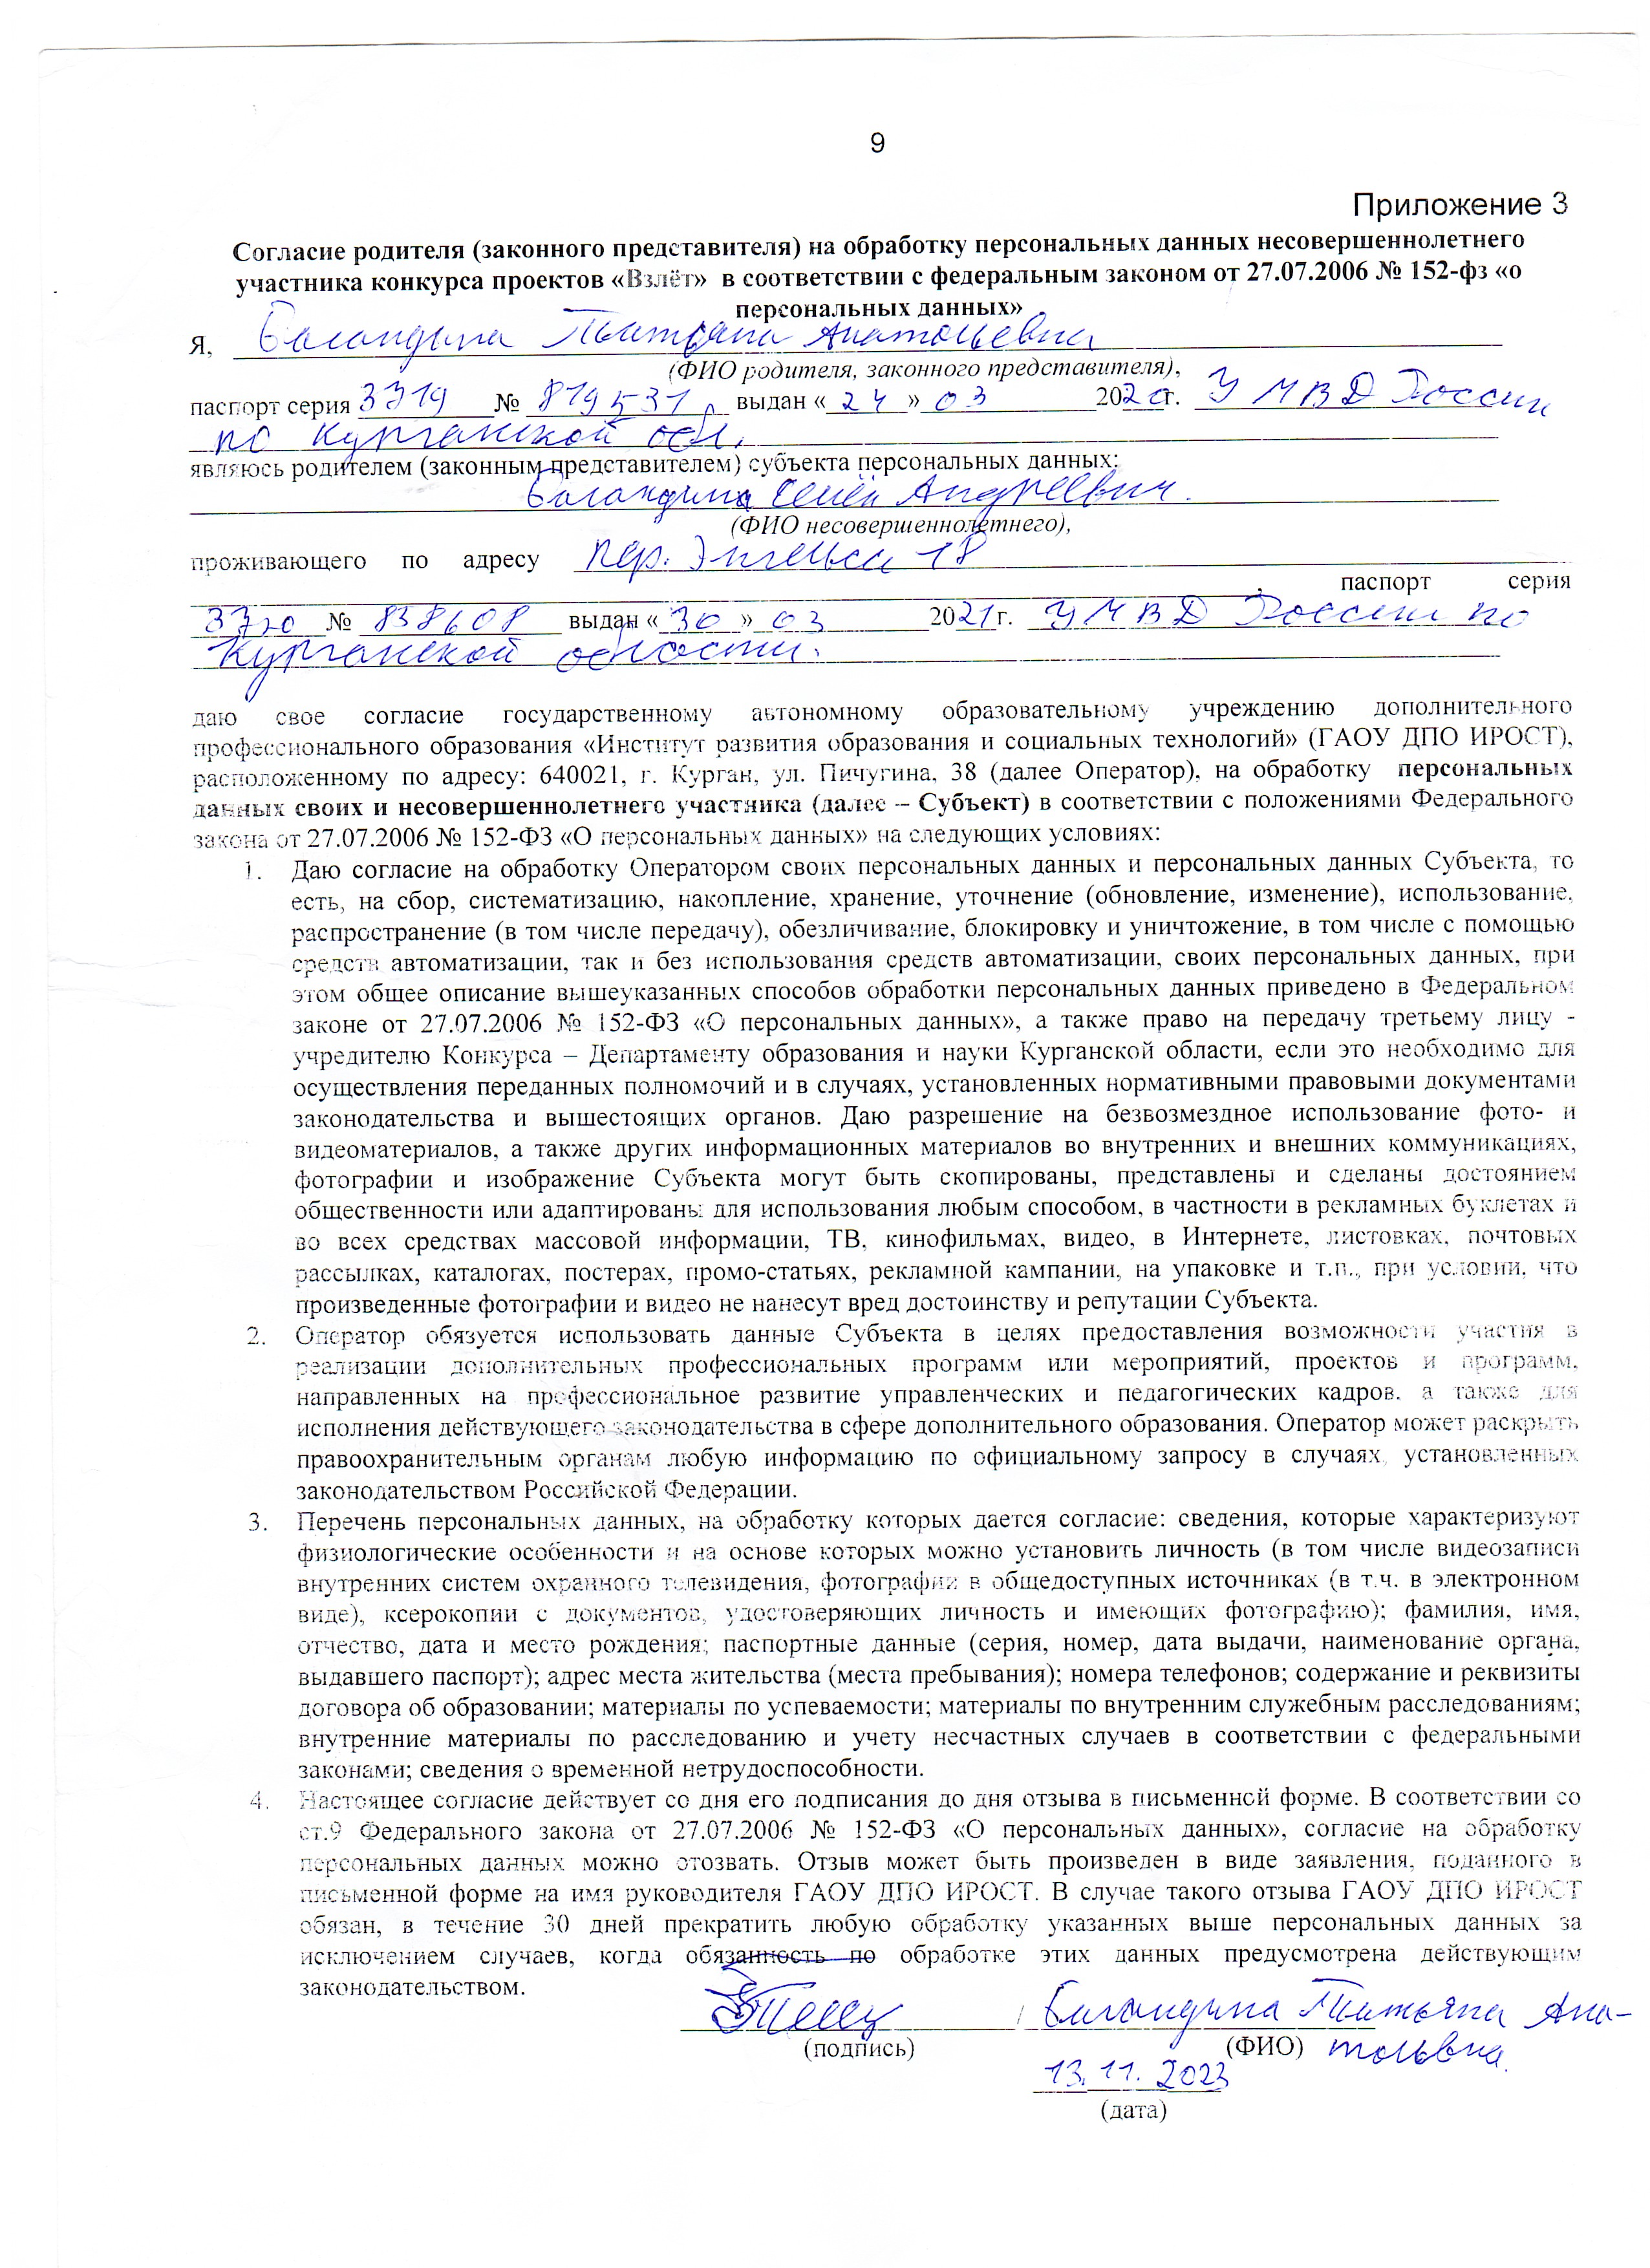 9
Приложение 3
Согласие родителя (законного представителя) на обработку персональных данных несовершеннолетнего
участника конкурса проектов «Взлёт» в соответствии с федеральным законом от 27.07.2006 № 152-фз «о
персональных данных»
Я, Баландина Татьяна Анатольевна
(ФИО родителя, законного представителя),
паспорт серия 3719 № 819531, выдан « 24 » 03 2020г. УМВД России
по Курганской обл.
являюсь родителем (законным представителем) субъекта персональных данных:
Баландина Семён Андреевич.
(ФИО несовершеннолетнего),
проживающего по адресу пер. Энгельса 18
, паспорт серия
3720 № 838608 выдан « 30 » 03 2021г. УМВД России по
Курганской области.
даю свое согласие государственному автономному образовательному учреждению дополнительного
профессионального образования «Институт развития образования и социальных технологий» (ГАОУ ДПО ИРОСТ),
расположенному по адресу: 640021, г. Курган, ул. Пичугина, 38 (далее Оператор), на обработку персональных
данных своих и несовершеннолетнего участника (далее – Субъект) в соответствии с положениями Федерального
закона от 27.07.2006 № 152-ФЗ «О персональных данных» на следующих условиях:
1. Даю согласие на обработку Оператором своих персональных данных и персональных данных Субъекта, то
есть, на сбор, систематизацию, накопление, хранение, уточнение (обновление, изменение), использование,
распространение (в том числе передачу), обезличивание, блокировку и уничтожение, в том числе с помощью
средств автоматизации, так и без использования средств автоматизации, своих персональных данных, при
этом общее описание вышеуказанных способов обработки персональных данных приведено в Федеральном
законе от 27.07.2006 № 152-ФЗ «О персональных данных», а также право на передачу третьему лицу -
учредителю Конкурса – Департаменту образования и науки Курганской области, если это необходимо для
осуществления переданных полномочий и в случаях, установленных нормативными правовыми документами
законодательства и вышестоящих органов. Даю разрешение на безвозмездное использование фото- и
видеоматериалов, а также других информационных материалов во внутренних и внешних коммуникациях,
фотографии и изображение Субъекта могут быть скопированы, представлены и сделаны достоянием
общественности или адаптированы для использования любым способом, в частности в рекламных буклетах и
во всех средствах массовой информации, ТВ, кинофильмах, видео, в Интернете, листовках, почтовых
рассылках, каталогах, постерах, промо-статьях, рекламной кампании, на упаковке и т.п., при условии, что
произведенные фотографии и видео не нанесут вред достоинству и репутации Субъекта.
2. Оператор обязуется использовать данные Субъекта в целях предоставления возможности участия в
реализации дополнительных профессиональных программ или мероприятий, проектов и программ,
направленных на профессиональное развитие управленческих и педагогических кадров, а также для
исполнения действующего законодательства в сфере дополнительного образования. Оператор может раскрыть
правоохранительным органам любую информацию по официальному запросу в случаях, установленных
законодательством Российской Федерации.
3. Перечень персональных данных, на обработку которых дается согласие: сведения, которые характеризуют
физиологические особенности и на основе которых можно установить личность (в том числе видеозаписи
внутренних систем охранного телевидения, фотографии в общедоступных источниках (в т.ч. в электронном
виде), ксерокопии с документов, удостоверяющих личность и имеющих фотографию); фамилия, имя,
отчество, дата и место рождения; паспортные данные (серия, номер, дата выдачи, наименование органа,
выдавшего паспорт); адрес места жительства (места пребывания); номера телефонов; содержание и реквизиты
договора об образовании; материалы по успеваемости; материалы по внутренним служебным расследованиям;
внутренние материалы по расследованию и учету несчастных случаев в соответствии с федеральными
законами; сведения о временной нетрудоспособности.
4. Настоящее согласие действует со дня его подписания до дня отзыва в письменной форме. В соответствии со
ст.9 Федерального закона от 27.07.2006 № 152-ФЗ «О персональных данных», согласие на обработку
персональных данных можно отозвать. Отзыв может быть произведен в виде заявления, поданного в
письменной форме на имя руководителя ГАОУ ДПО ИРОСТ. В случае такого отзыва ГАОУ ДПО ИРОСТ
обязан, в течение 30 дней прекратить любую обработку указанных выше персональных данных за
исключением случаев, когда обязанность по обработке этих данных предусмотрена действующим
законодательством.
/ Баландина Татьяна Ана-
(подпись) (ФИО) тольевна.
13.11.2023
(дата)